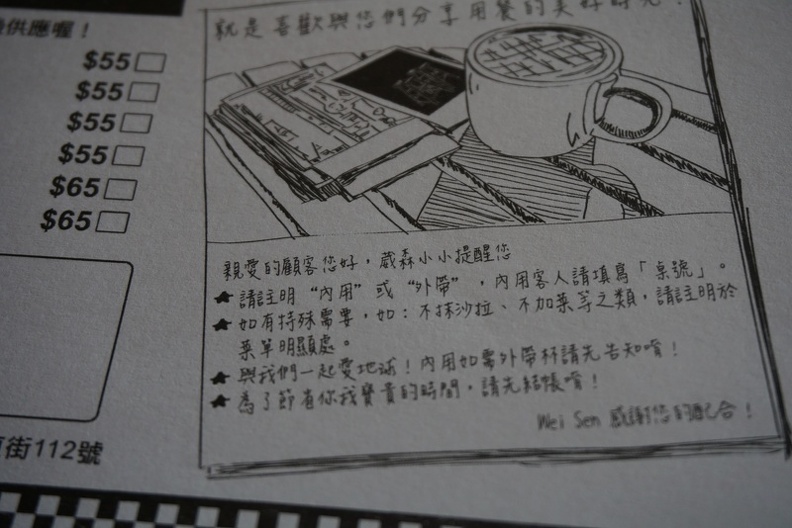 就是喜歡與您們分享用餐的美好時光！
供應喔！
$55
$55
$55
$55
$65
$65
親愛的顧客您好，葳森小小提醒您
★ 請註明“內用”或“外帶”，內用客人請填寫「桌號」。
★ 如有特殊需要，如：不抹沙拉、不加菜等之類，請註明於
菜單明顯處。
★ 與我們一起愛地球！內用如需外帶杯請先告知唷！
★ 為了節省你我寶貴的時間，請先結帳唷！
Wei Sen 感謝您的配合！
街112號